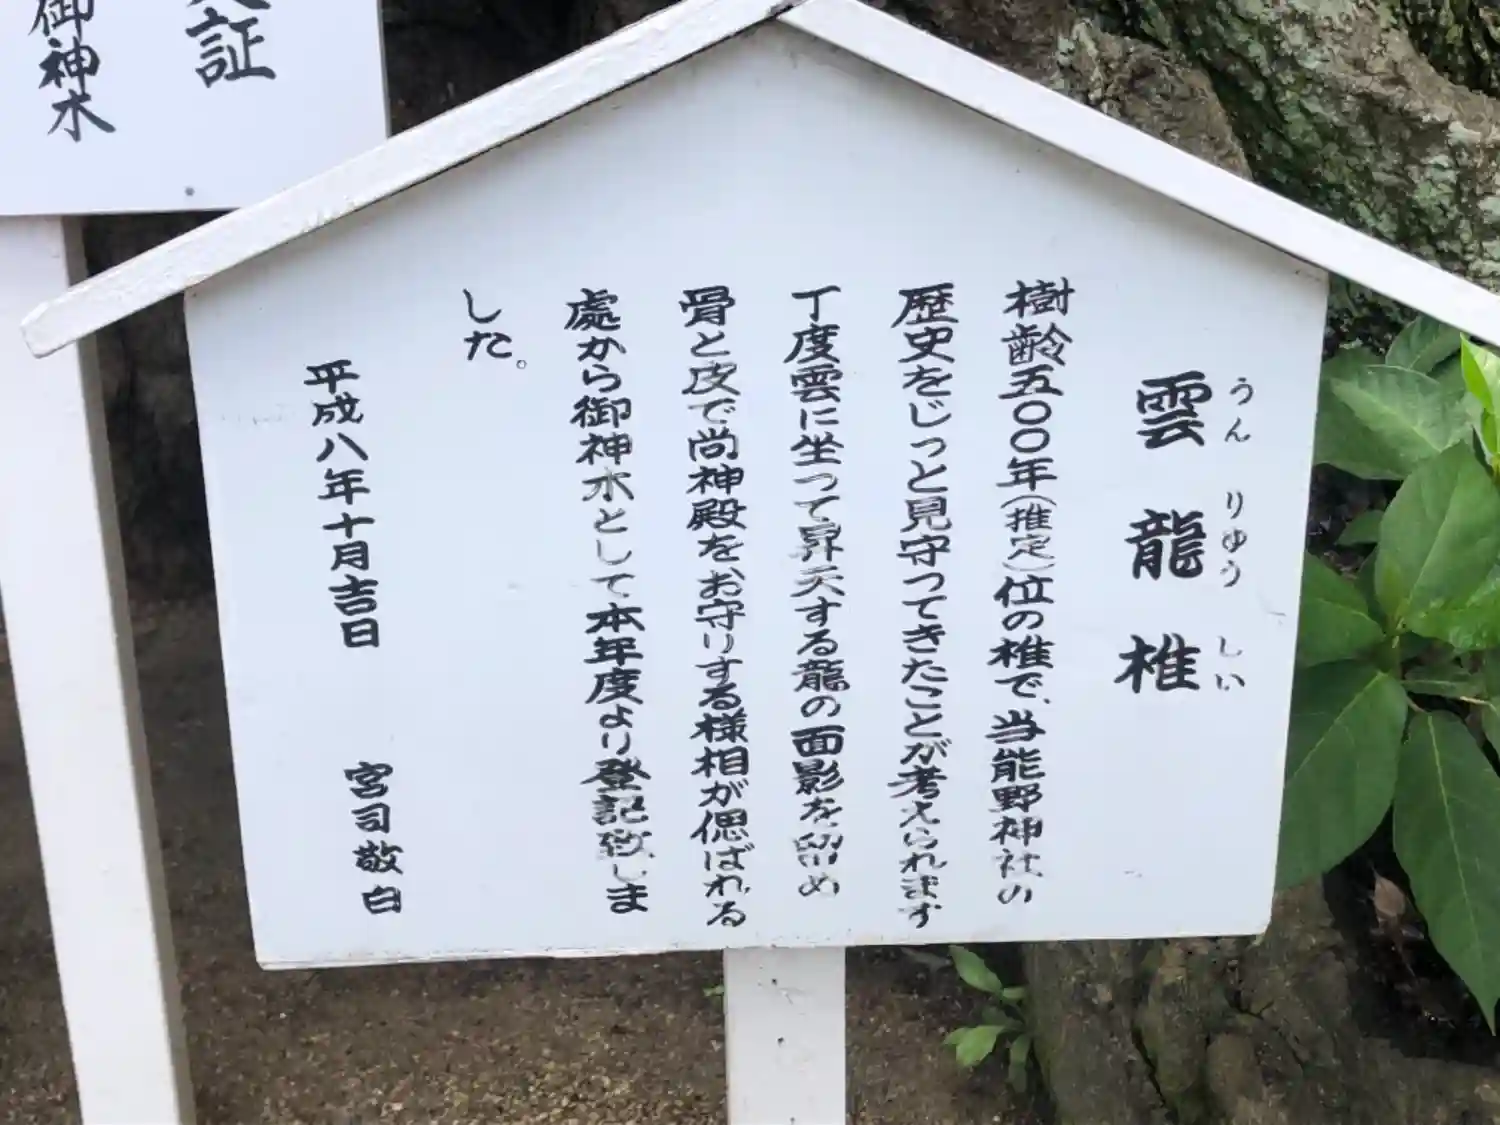 雲龍椎
うんりゆうしい
樹齢五〇〇年(推定)位の椎で、当熊野神社の
歴史をじっと見守ってきたことが考えられます
丁度雲に坐って昇天する龍の面影を留め
骨と皮で尚神殿をお守りする様相が偲ばれる
處から御神水として本年度より登記致しま
した。
平成八年十月吉日
宮司敬白
証
御神水